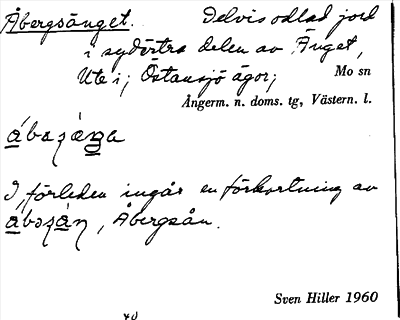 Åbergsänget. Delvis odlad jord
i sydöstra delen av Änget,
Ute i; Östansjö ägor; Mo sn
Ångerm. n. doms. tg, Västern. l.
I förleden ingår en förkortning av
Åbergsån.
Sven Hiller 1960